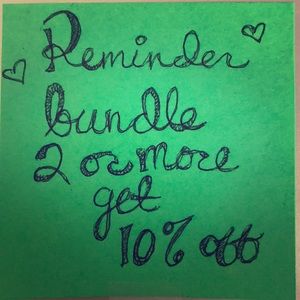 Reminder
bundle
2 or more
get
10% off